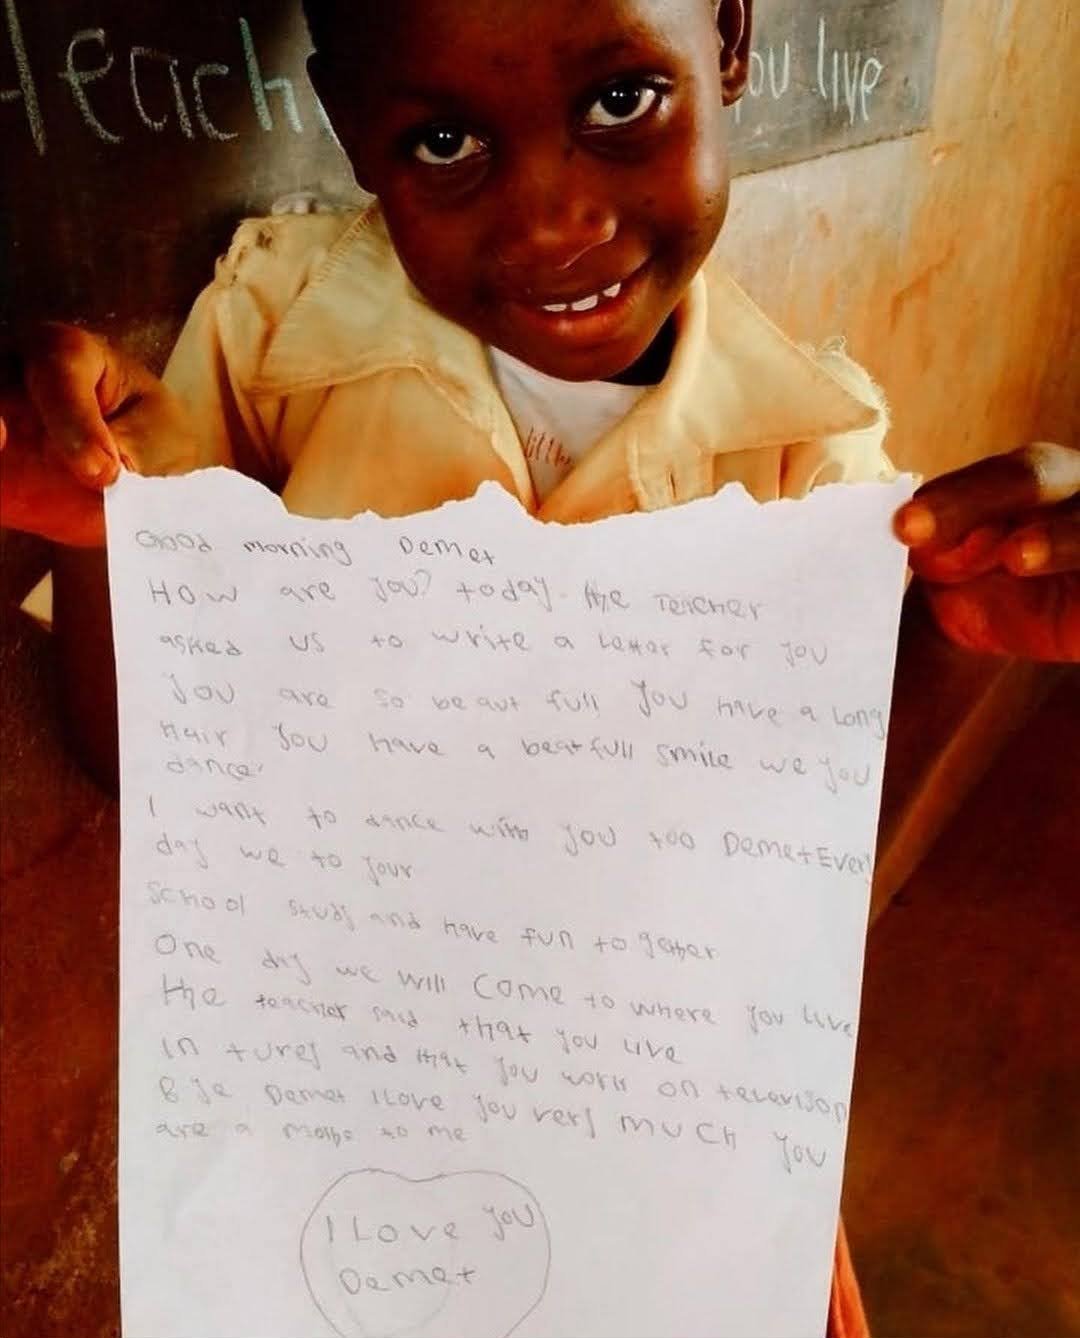 Teach
you live
little
Good morning Demet
How are you? today the Teacher
asked us to write a Letter for you
you are so beaut full you have a Long
Hair you have a beatfull smile we you
dance
I want to dance with you too Demet Every
day we to your
school study and have fun to gether
One day we will come to where you Live
the teacher said that you Live
In turey and that you work on televrison
B ye Demet I Love you very much you
are a mothe to me
I Love you
Demet